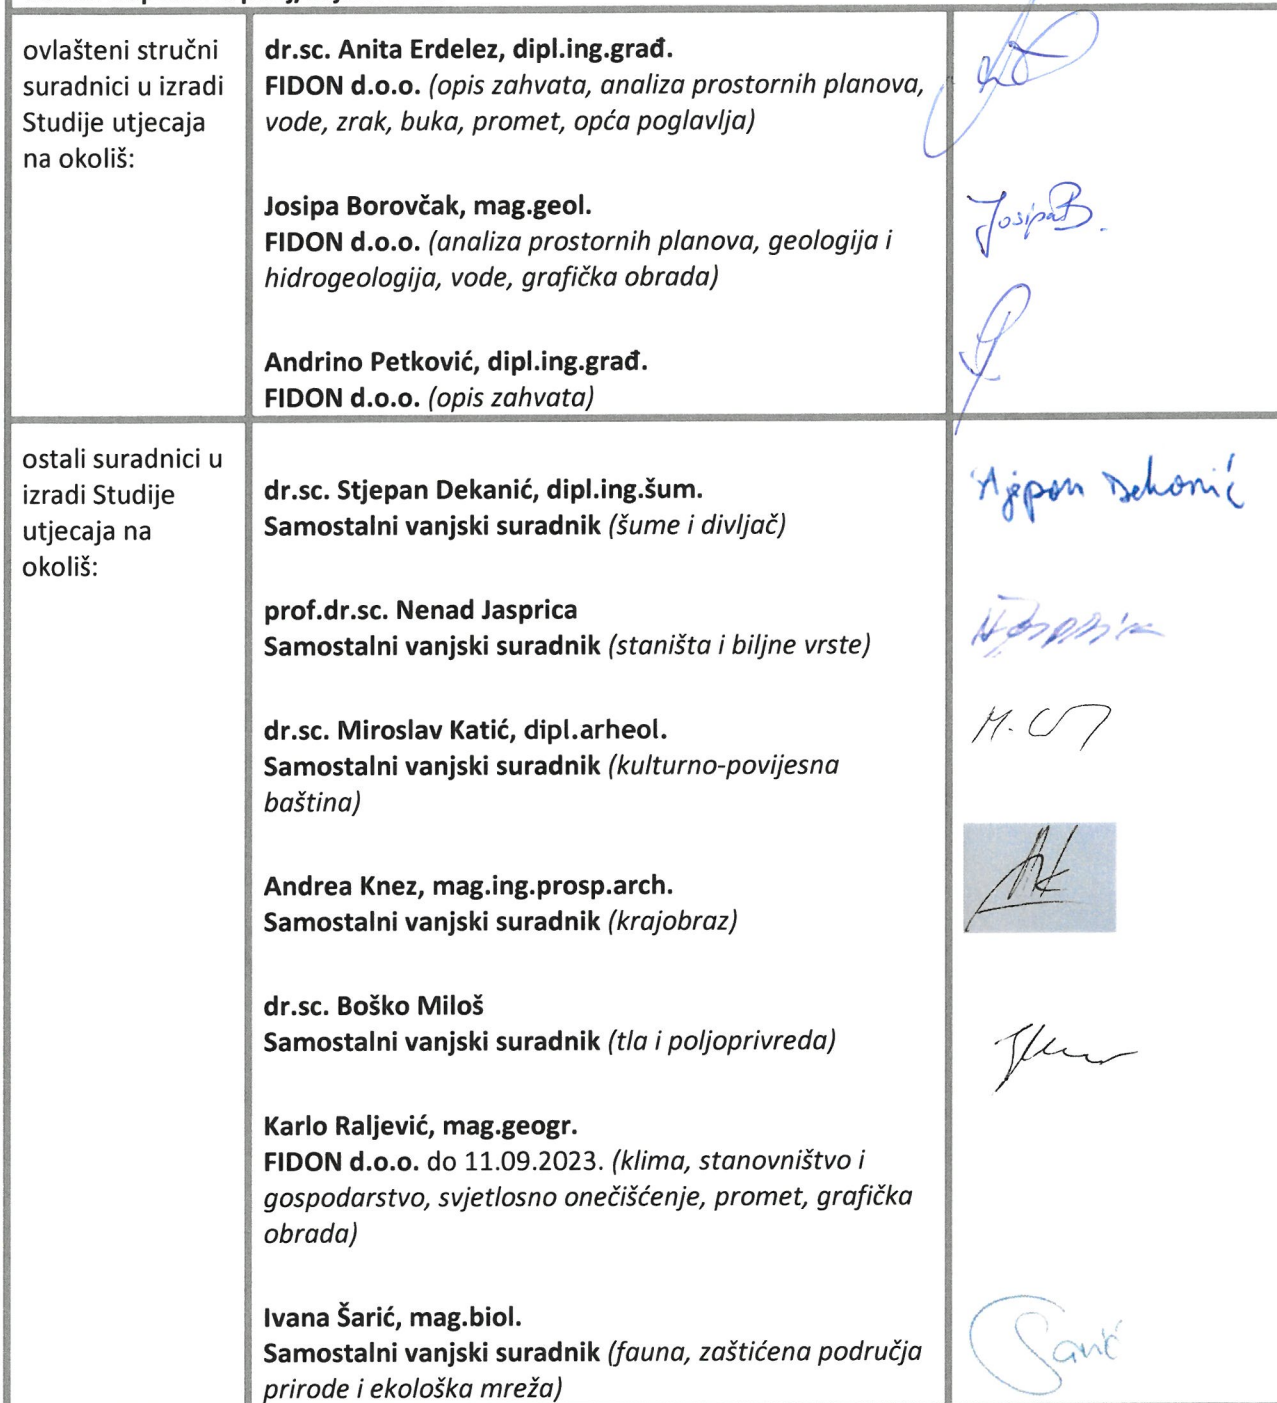 ovlašteni stručni
suradnici u izradi
Studije utjecaja
na okoliš:
dr.sc. Anita Erdelez, dipl.ing.građ.
FIDON d.o.o. (opis zahvata, analiza prostornih planova,
vode, zrak, buka, promet, opća poglavlja)
Josipa Borovčak, mag.geol.
FIDON d.o.o. (analiza prostornih planova, geologija i
hidrogeologija, vode, grafička obrada)
JosipaB.
Andrino Petković, dipl.ing.građ.
FIDON d.o.o. (opis zahvata)
ostali suradnici u
izradi Studije
utjecaja na
okoliš:
dr.sc. Stjepan Dekanić, dipl.ing.šum.
Samostalni vanjski suradnik (šume i divljač)
Stjepan Dekanić
prof.dr.sc. Nenad Jasprica
Samostalni vanjski suradnik (staništa i biljne vrste)
dr.sc. Miroslav Katić, dipl.arheol.
Samostalni vanjski suradnik (kulturno-povijesna
baština)
Andrea Knez, mag.ing.prosp.arch.
Samostalni vanjski suradnik (krajobraz)
dr.sc. Boško Miloš
Samostalni vanjski suradnik (tla i poljoprivreda)
Karlo Raljević, mag.geogr.
FIDON d.o.o. do 11.09.2023. (klima, stanovništvo i
gospodarstvo, svjetlosno onečišćenje, promet, grafička
obrada)
Ivana Šarić, mag.biol.
Samostalni vanjski suradnik (fauna, zaštićena područja
prirode i ekološka mreža)
Šarić